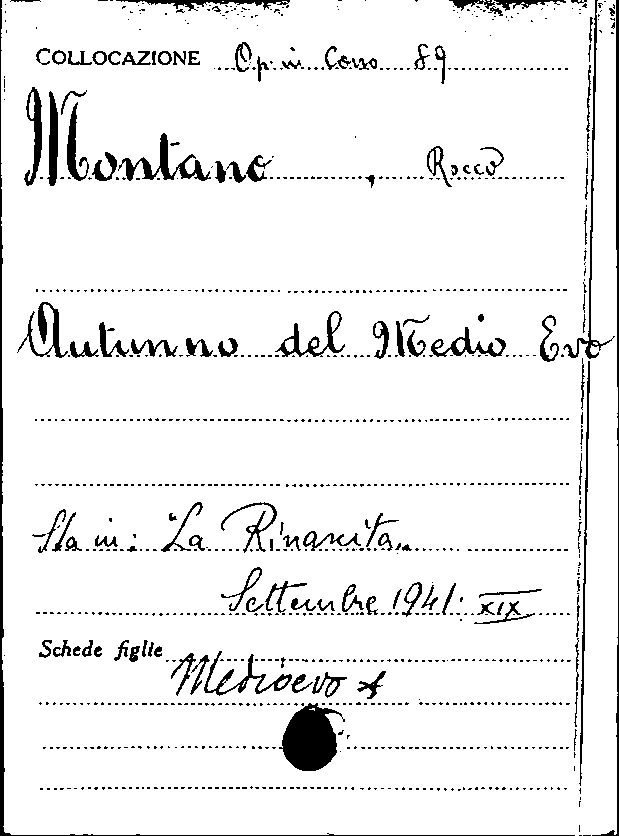 COLLOCAZIONE Op. in Corso 89
Montano, Rocco
Autunno del Medio Evo
Sta in: "La Rinascita"
Settembre 1941. XIX
Schede figlie
Medioevo